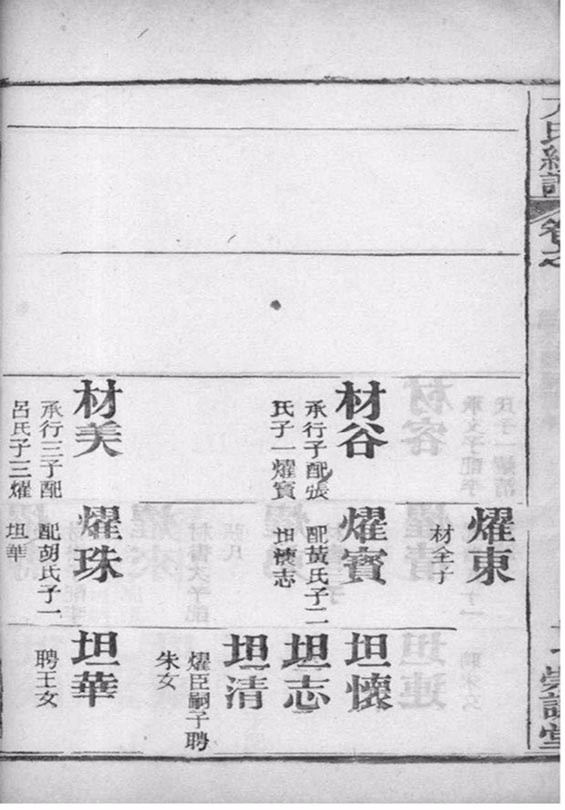 氏續譜
卷之七
崇誼堂
耀東
材全子
材谷
承行子配張
氏子一耀寶
耀寶
配黃氏子二
坦懷志
坦懷
坦志
坦清
耀臣嗣子聘
朱女
材美
承行三子配
呂氏子三耀
耀珠
配胡氏子一
坦華
坦華
聘王女